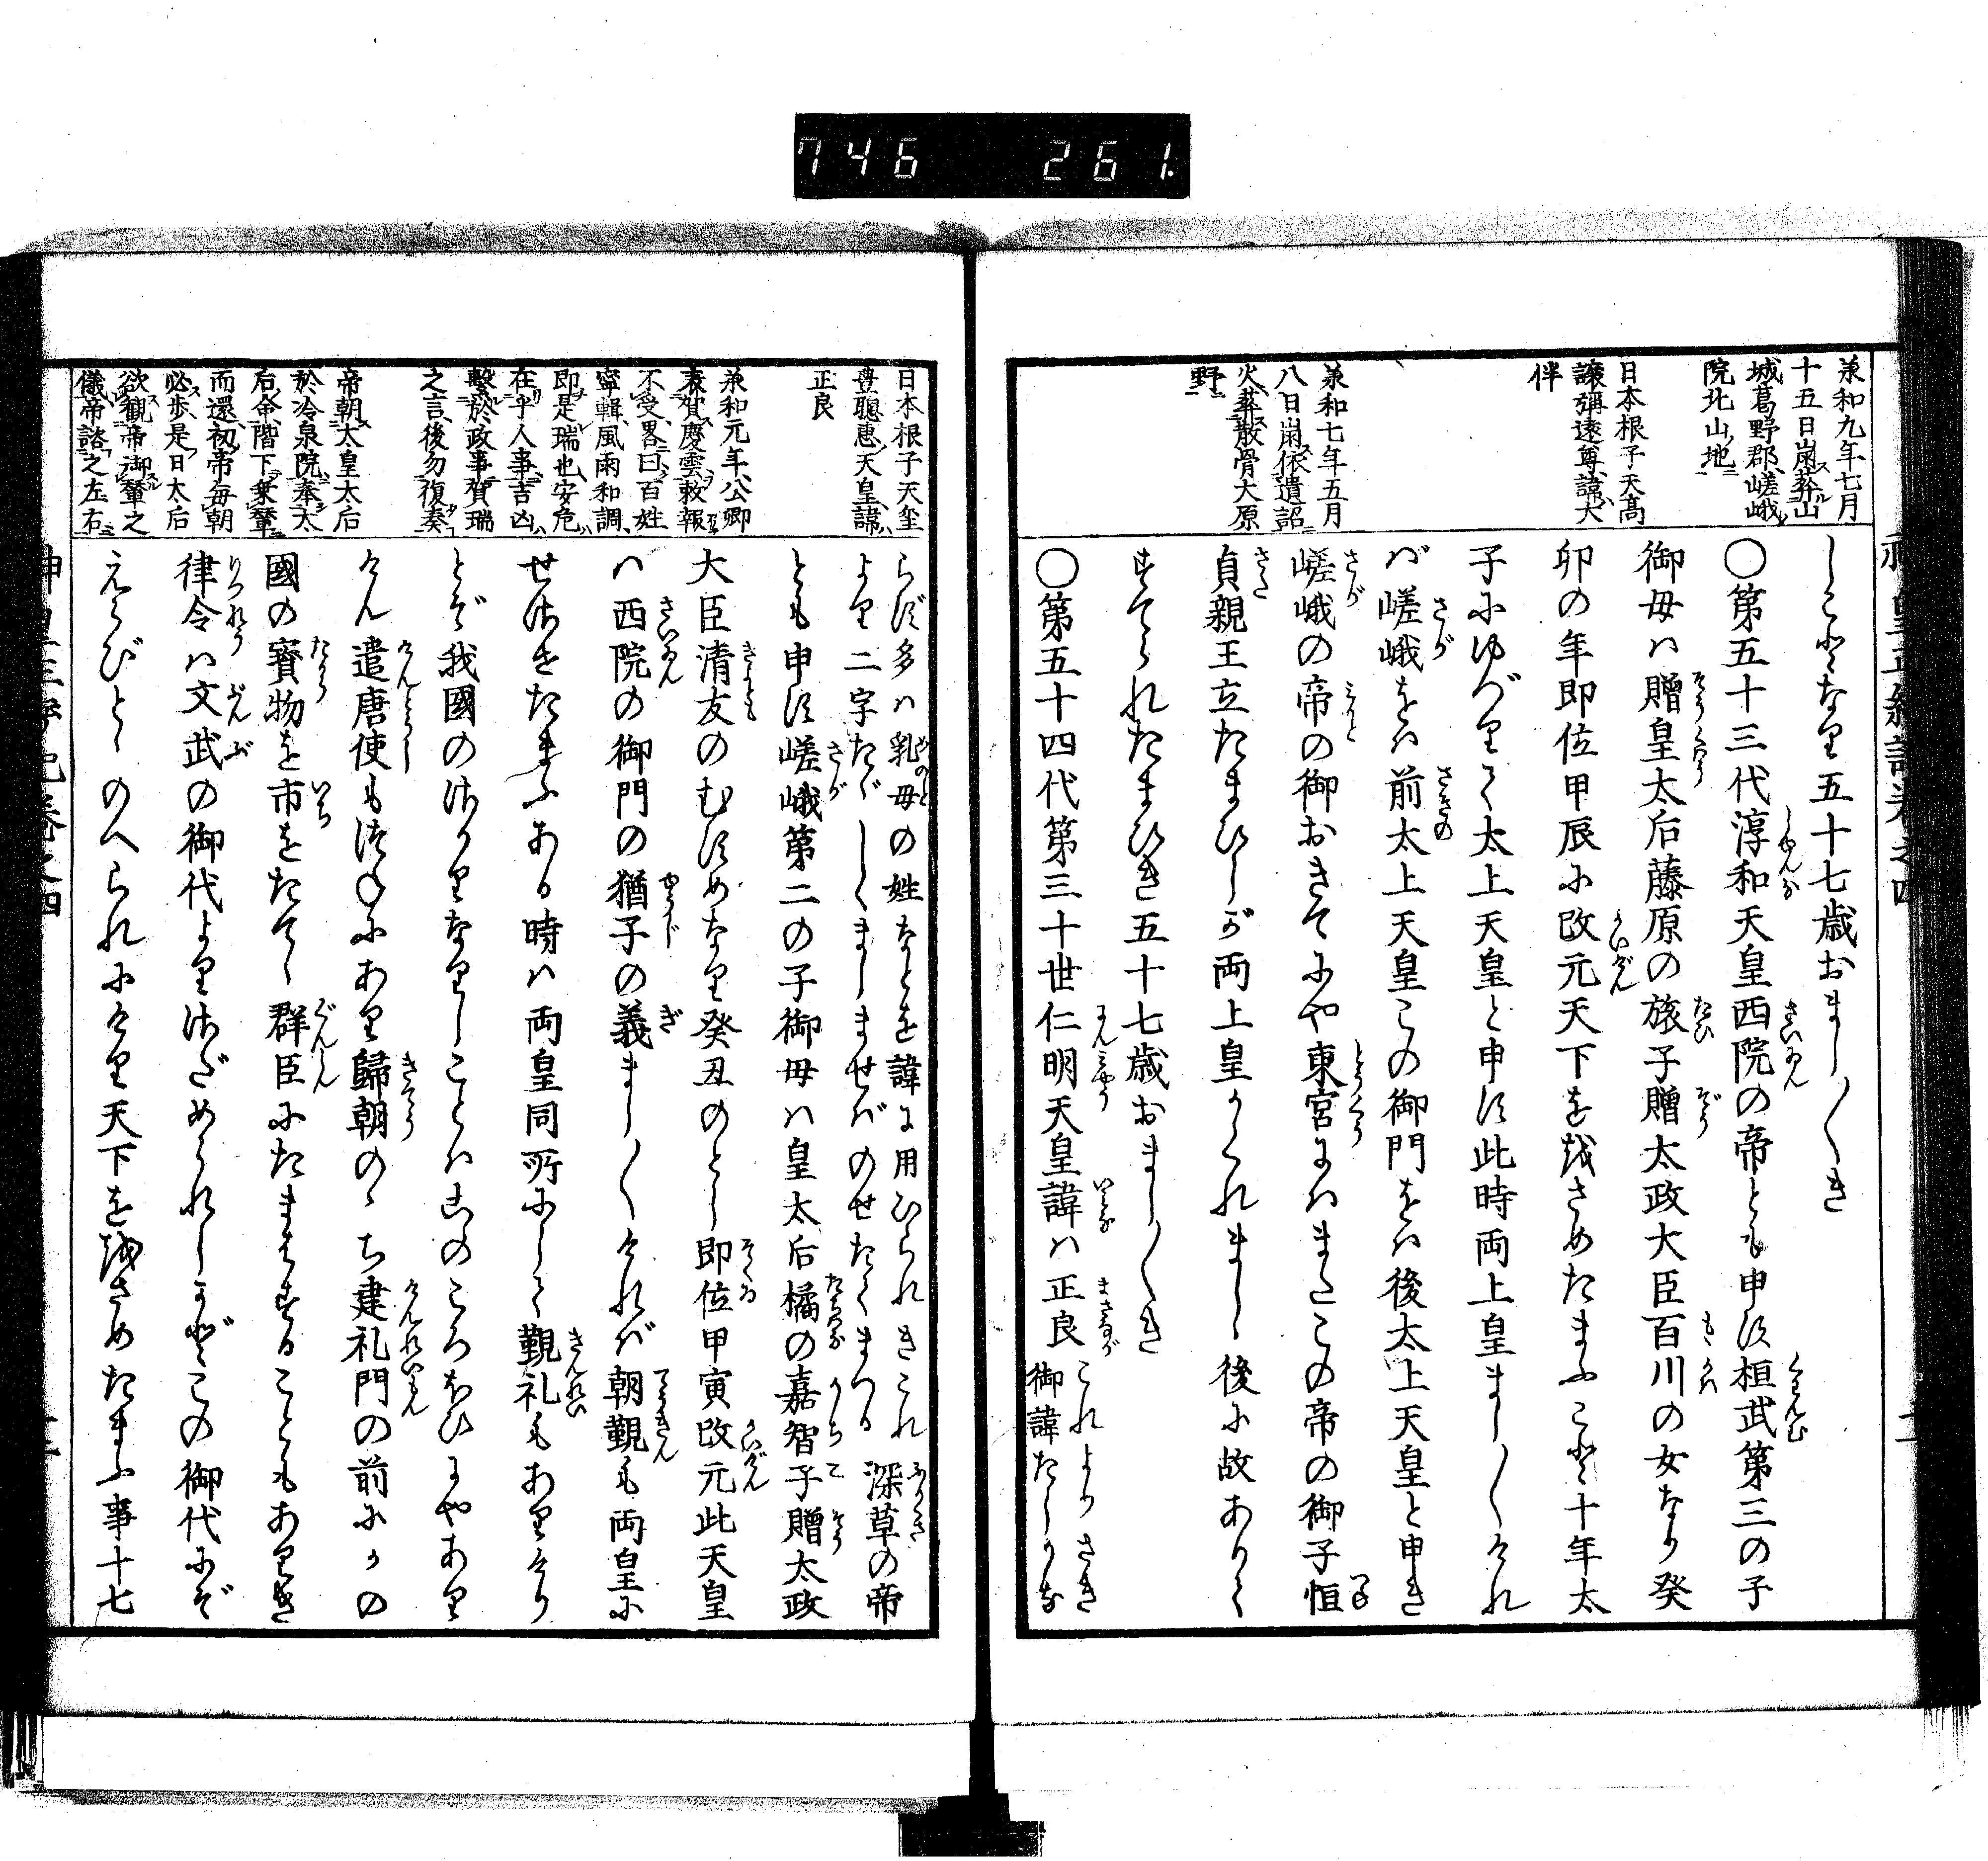 746 261.
承和九年七月
十五日崩葬山
城葛野郡嵯峨
院北山地
日本根子天髙
譲彌遠尊諱大
伴
承和七年五月
八日崩依遺詔
火葬散骨大原
野
しことなり五十七歳おまし〱き
〇第五十三代淳和天皇西院の帝とも申す桓武第三の子
御母ハ贈皇太后藤原の旅子贈太政大臣百川の女なり癸
卯の年即位甲辰に改元天下を越さめたまふこと十年太
子にゆづりて太上天皇と申す此時両上皇まし〱けれ
バ嵯峨をハ前太上天皇この御門をハ後太上天皇と申き
嵯峨の帝の御おきてにや東宮にハまたこの帝の御子恒
貞親王立たまひしが両上皇かくれましゝ後に故ありて
すてられたまひき五十七歳おまし〱き
〇第五十四代第三十世仁明天皇諱ハ正良 これよりさき御諱たしかな
日本根子天璽
尊聰惠天皇諱
正良
承和元年公卿
表賀慶雲敕報
不受畧曰百姓
寧輯風雨和調
即是瑞也安危
在乎人事吉凶
繫於政事賀瑞
之言後勿復奏
帝朝太皇太后
於冷泉院奉太
后命階下乗輦
而還初帝毎朝
必歩是日太后
欲觀帝御輦之
儀帝諮之左右
らす多ハ乳母の姓なとを諱に用ひられきこれ
より二字たゞしくましませバのせたてまつる 深草の帝
とも申す嵯峨第二の子御母ハ皇太后橘の嘉智子贈太政
大臣清友のむすめなり癸丑のとし即位甲寅改元此天皇
ハ西院の御門の猶子の義まし〱けれバ朝覲も両皇に
せさせたまふある時ハ両皇同所にして覲礼もありけり
とぞ我國のさかりなりしことハこのころほひにやあり
けん遣唐使もつねにあり歸朝のゝち建礼門の前にかの
國の寳物を市をたてゝ群臣にたまはすることもありき
律令ハ文武の御代よりさだめられしかどこの御代にぞ
えらびとゝのへられにけり天下を越さめたまふ事十七